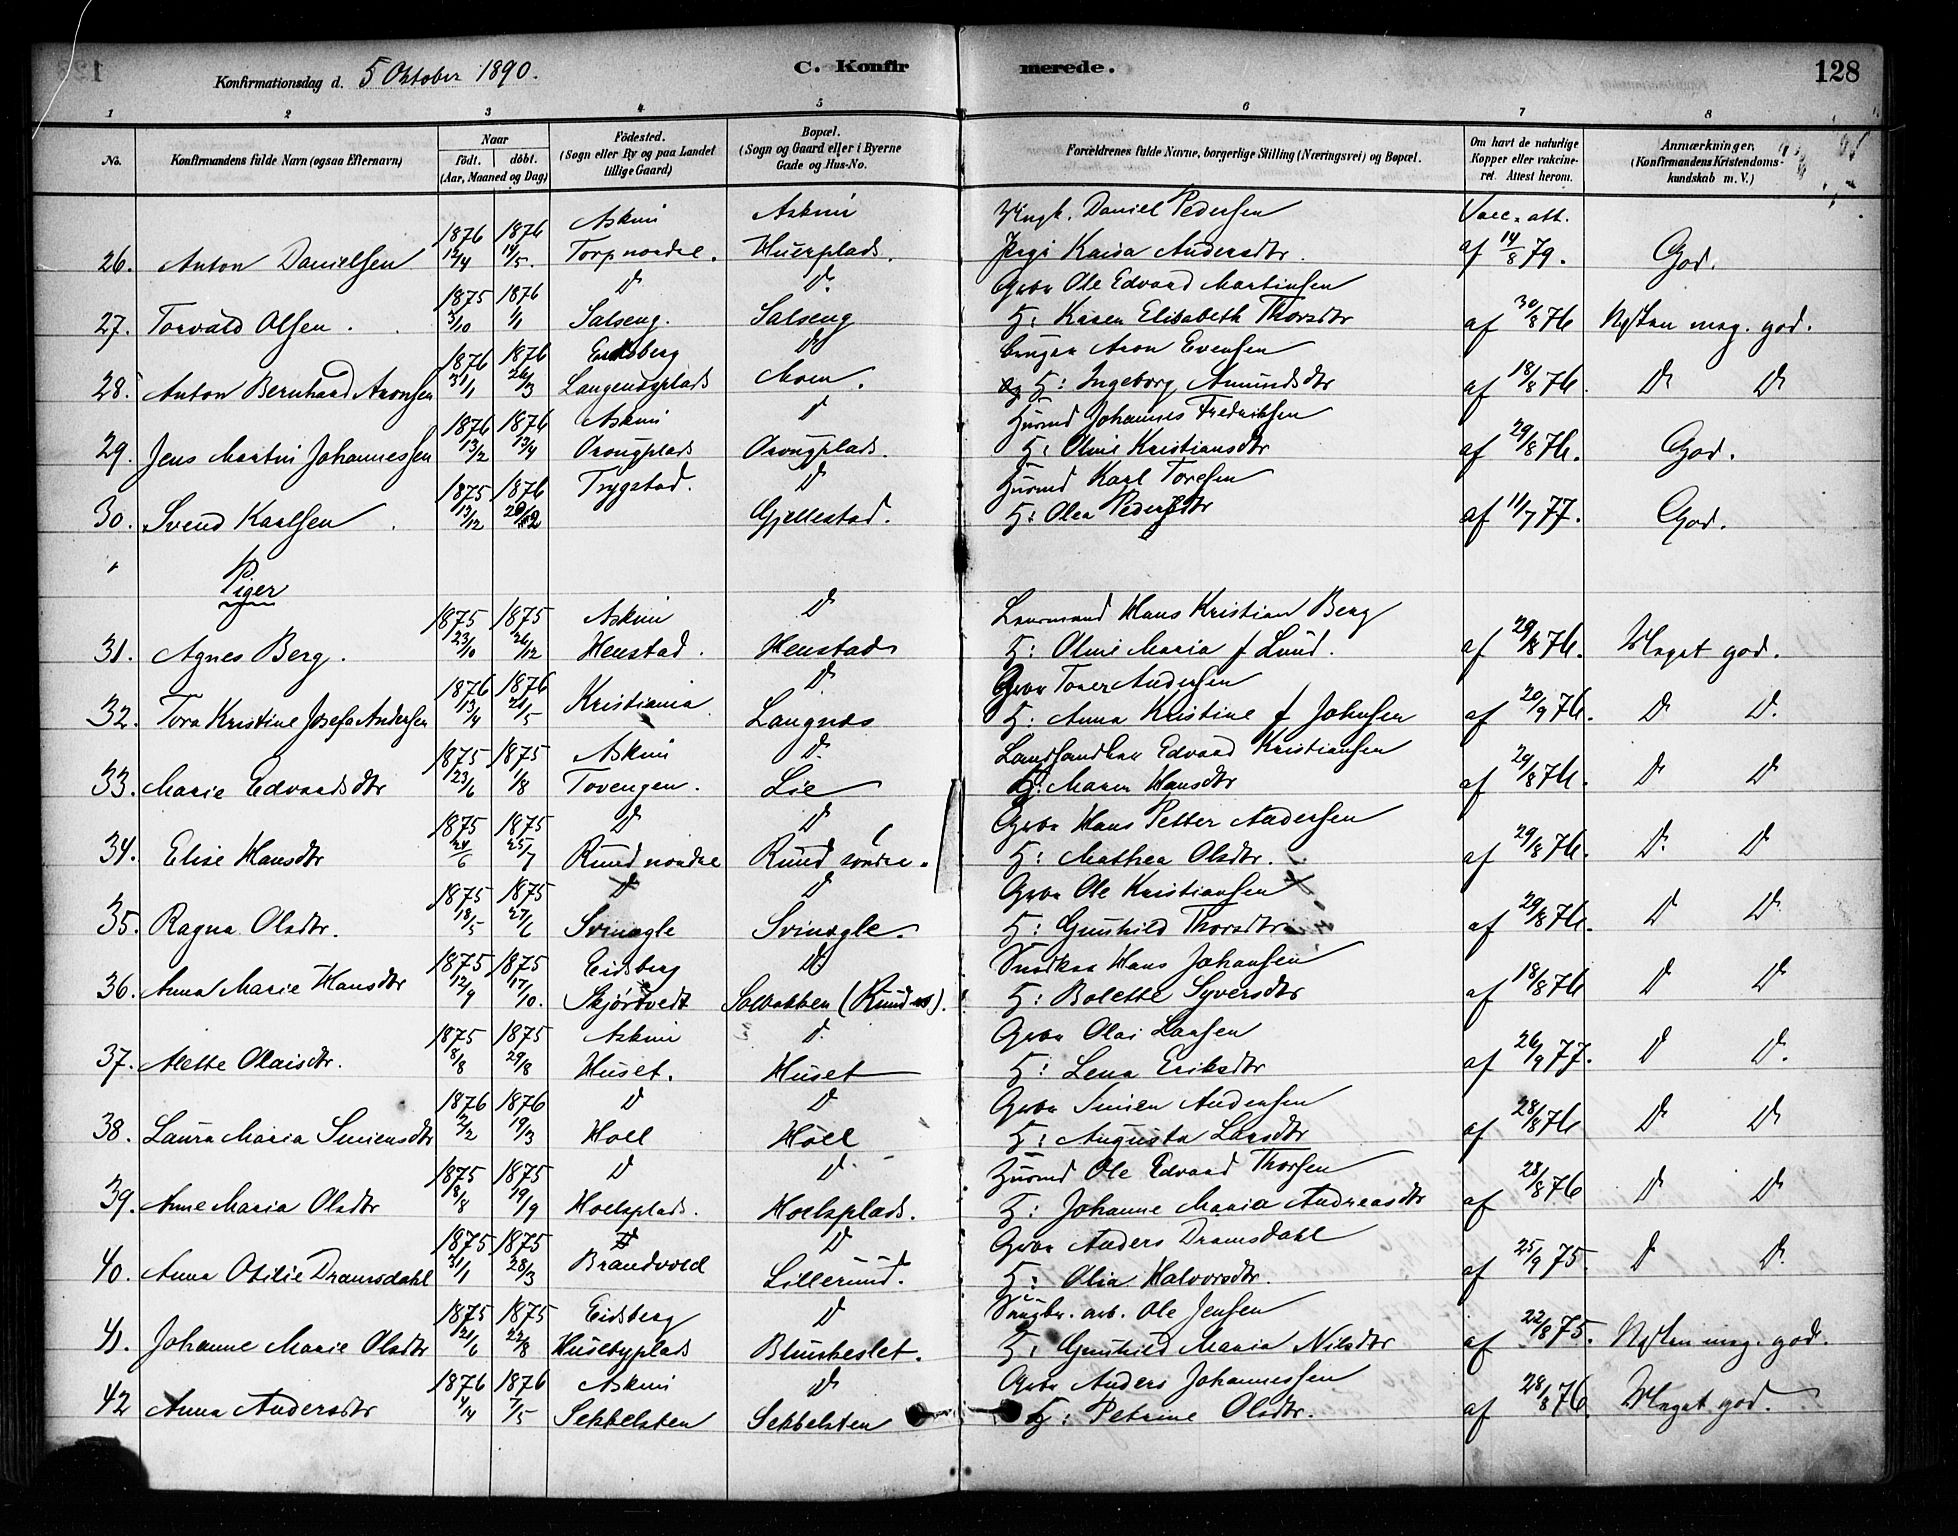 Konfirmationsdag d. 5 Oktober 1890.
C. Konfirmerede.
128
1 2 3 4 5 6 7 8
No.
Konfirmandens fulde Navn (ogsaa Efternavn)
Naar
födt. döbt.
(Aar, Maaned og Dag)
Födested.
(Sogn eller By og paa Landet
tillige Gaard)
Bopæl.
(Sogn og Gaard eller i Byerne
Gade og Hus-No.
Forældrenes fulde Navne, borgerlige Stilling (Næringsvei) og Bopæl.
Om havt de naturlige
Kopper eller vakcine-
ret. Attest herom.
Anmærkninger,
(Konfirmandens Kristendoms-
kundskab m. V.)
1876 1876 Askim Askim Ungk. Daniel Pedersen Vacc. att.
26. Anton Danielsen 12/4 14/5. Torp nordre. Huerplads. Pige Kaisa Andersdtr. af 14/8 79. God.
1875 1876 D D Grbr Ole Edvard Martinsen
27. Torvald Olsen. 3/10 1/1 Salseng. Salseng H: Karen Elisabeth Thorsdtr af 30/8 76 Næsten meg. god.
1876 1876 Eidsberg D Bruger Aron Evensen
28. Anton Bernhard Aronsen 31/1 26/3 Langenæsplads Moen. H: Ingeborg Amundsdtr af 18/8 76. D D
1876 1876 Askim D Husmd Johannes Fredriksen
29. Jens Martin Johannessen 13/2 13/4 Ovougplads Ovougplads. H: Oline Kristiansdtr af 29/8 76. God.
1875 1876 Trygstad. D Husmd Karl Toresen
30. Svend Karlsen 13/12 Gjellestad. H: Olea Pedersdtr af 11/7 77. God.
Piger
1875 1875 Askim D Lensmand Hans Kristian Berg
31. Agnes Berg. 23/10 26/12 Henstad. Henstad H: Oline Maria f Lund. af 29/8 76. Meget god.
1876 1876 Kristiania D Grbr Tover Andersen
32. Tora Kristine Josefa Andersen 13/4 21/5 Langnæs H: Anna Kristine f Johnsen af 20/9 76. D D.
1875 1875 Askim D. Landhandler Edvard Kristiansen
33. Marie Edvardsdtr 23/6 1/8 Tovengen. Lie H: Maren Hansdtr af 29/8 76. D D
1875 1875 D D Grbr Hans Petter Andersen
34. Elise Hansdtr 24/6 25/7 Rund nordre Rund søndre. H: Mathea Olsdtr. af 29/8 76. D. D
1875 1875 D D Grbr Ole Kristiansen
35. Ragna Olsdtr. 18/5 27/6 Svinægle Svinægle. H: Gunhild Thorsdtr af 29/8 76. D D.
1875 1875 Eidsberg D. Snedker Hans Johansen
36. Anna Marie Hansdtr 12/9 17/10. Skjørtvedt Solbakken (Rund ns). H: Bolette Syversdtr af 18/8 76 D D
1875 1875 Askim D. Grbr Olai Larsen
37. Mette Olaisdtr. 8/8 29/8 Huset. Huset H: Lena Eriksdtr af 26/9 77. D D.
1876 1876 D D Grbr Simen Andersen
38. Laura Maria Simensdtr 2/2 19/3 Holl Holl H: Augusta Larsdtr af 28/8 76 D D
1875 1875 D D. Husmd Ole Edvard Thorsen
39. Anne Maria Olsdtr 18/8 19/9 Hoelsplads. Hoelsplads. H: Johanne Maria Andreasdtr af 28/8 76 D D
1875 1875 D D Grbr Anders Dramsdahl
40. Anna Otilie Dramsdahl 31/1 28/3 Brandvold Lillerund. H: Olia Halvorsdtr. af 25/9 75. D D.
1875 1875 Eidsberg D Saugbr. arb. Ole Jensen
41. Johanne Marie Olsdtr 21/6 22/8 Husebyplads H: Gunhild Maria Nilsdtr af 22/8 75. Næsten meg. god.
1876 1876 Askim D Grbr Anders Johannessen
42 Anna Andersdtr 4/4 7/5 Sekkelsten Sekkelsten H: Petrine Olsdtr. af 28/8 76. Meget god.